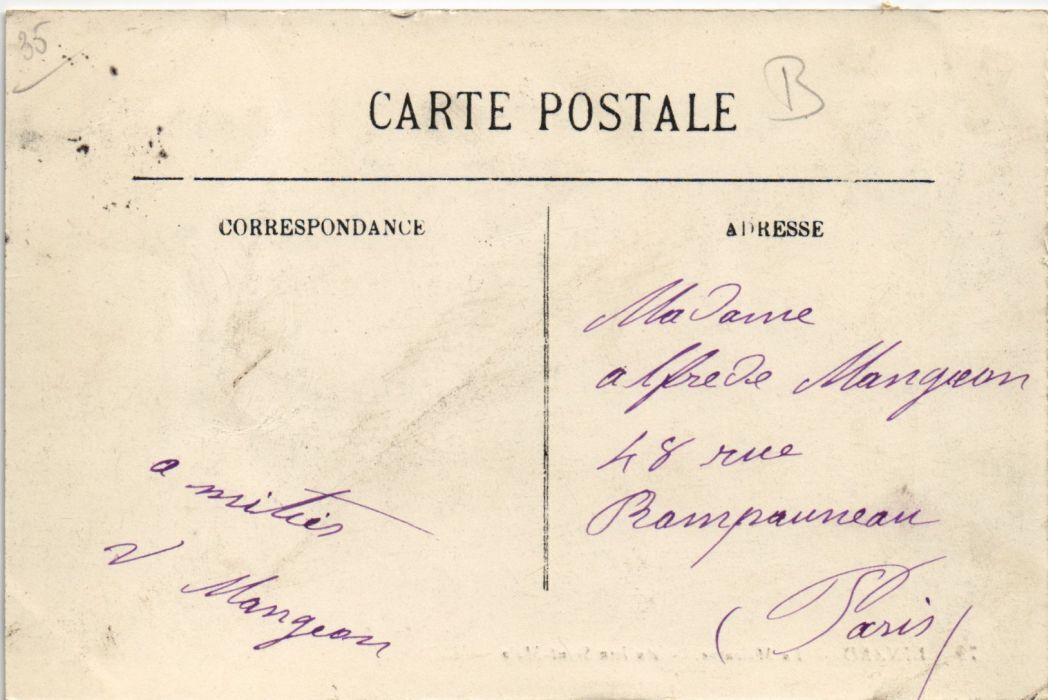 35
B
CARTE POSTALE
CORRESPONDANCE
amitiés
Mangeon
ADRESSE
Madame
alfrede Mangeon
48 rue
Rampauneau
(Paris)